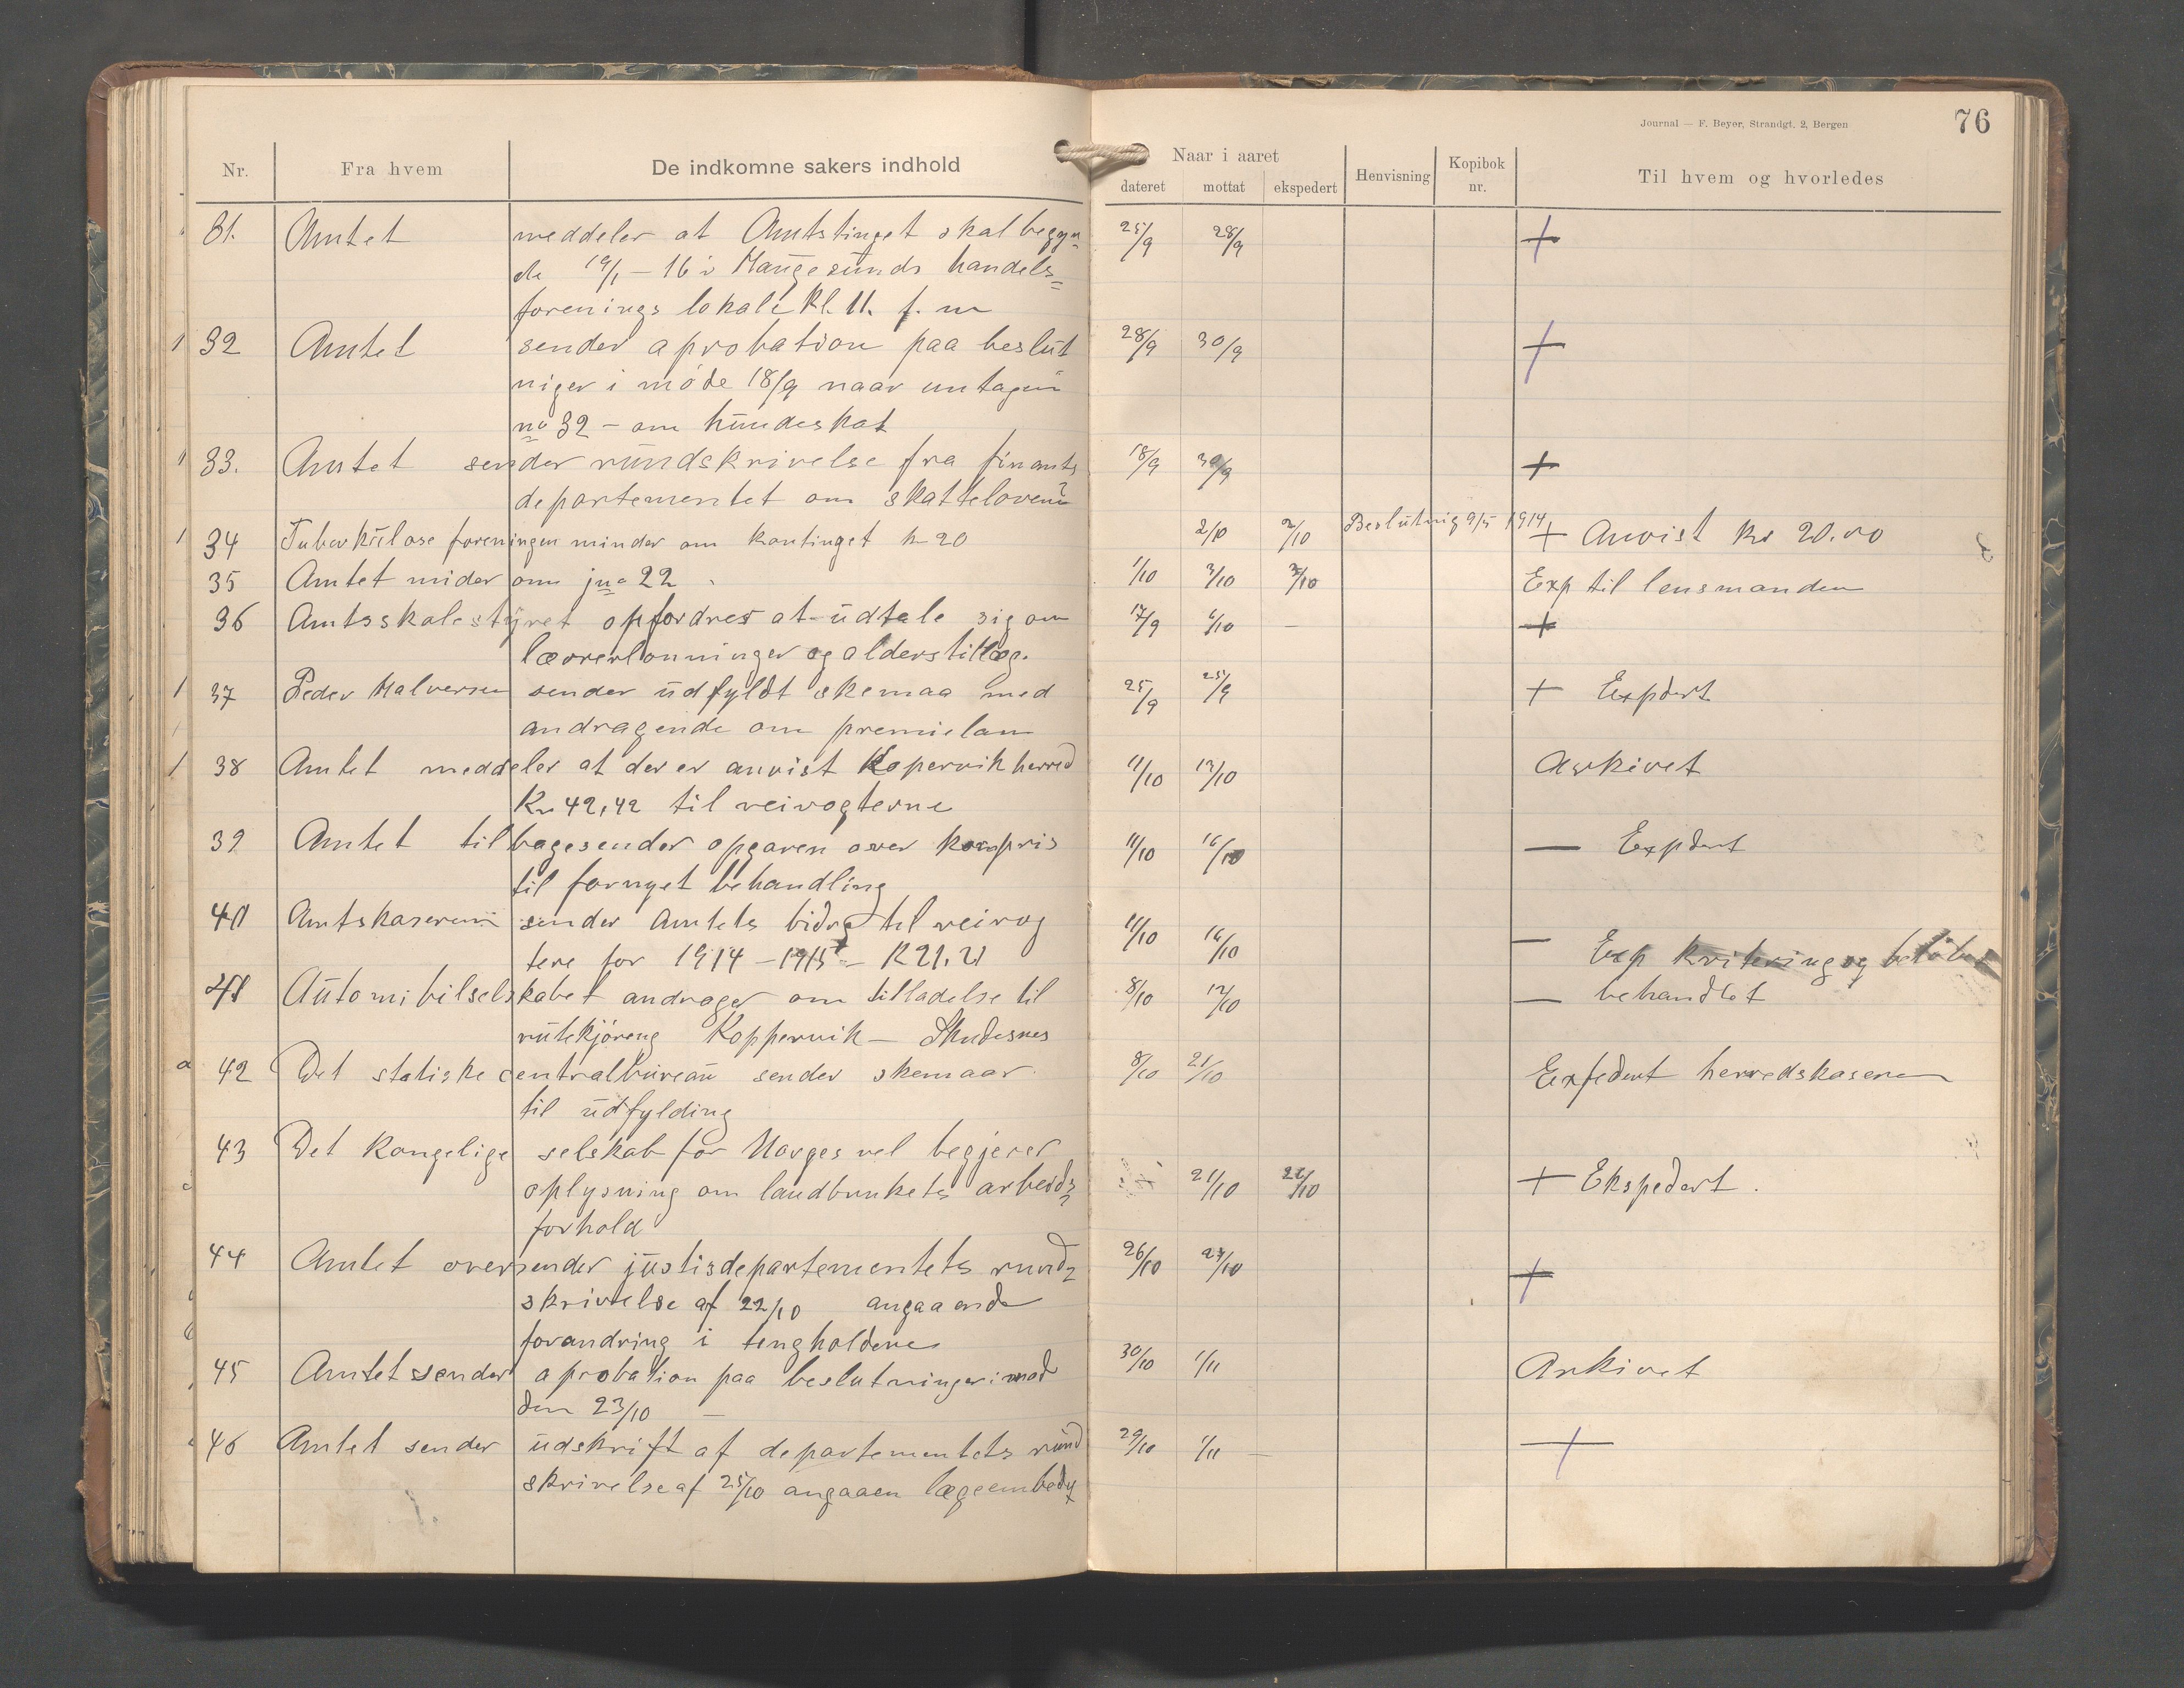 Journal — F. Beyer, Strandgt. 2, Bergen 76
Nr. Fra hvem De indkomne sakers indhold Naar i aaret dateret mottat ekspedert Henvisning Kopibok nr. Til hvem og hvorledes
31. Amtet meddeler at Amtstinget skal begyn= 25/9 28/9 +
de 19/1 – 16 i Haugesunds handels=
forenings lokale kl. 11. f. m
32 Amtet sender aprobation paa beslut 28/9 30/9 +
niger i møde 18/9 naar untagen
no 32 – om hundeskat
33. Amtet sender rundskrivelse fra finants 18/9 30/9 +
departementet om skatteloven
34 Tuberkulose foreningen minder om kontinget kr 20 2/10 2/10 Beslutnig 9/5 1914 + Anvist kr 20.00
35 Amtet minder om jno 22 1/10 3/10 3/10 Exp til lensmanden
36 Amtsskolestyret opfordres at udtale sig om 17/9 6/10 – +
lærrerlønninger og alderstillæg.
37 Peder Halversen sender udfyldt skemaa med 25/9 25/9 + Expdert
andragende om premielaan
38 Amtet meddeler at der er anvist Kopervik herred 11/10 13/10 Arkivet
Kr 42,42 til veivogterne
39 Amtet tilbagesender opgaven over kornpris 11/10 16/10 — Expdert
til fornyet behandling
40 Amtskasereren sender Amtets bidrag til veivog 11/10 16/10 — Exp kvitering og beløbet
tere for 1914 – 1915 – K 21.21
41 Automibilselskabet androger om tilladelse til 8/10 12/10 — behandlet
rutekjøreng Koppervik – Skudesnes
42 Det statiske centralbureau sender skemaar 8/10 21/10 Expedert herredskaseren
til udfylding
43 Det Kongelige selskab for Norges vel begjerer
oplysning om landbrukets arbeids= 21/10 22/10 + Ekspedert.
forhold
44 Amtet oversender justisdepartementets rund= 26/10 27/10 +
skrivelse af 22/10 angaaende
forandring i tingholdene
45 Amtet sender aprobation paa beslutninger i mød 30/10 1/11 Arkivet
den 23/10 –
46 Amtet sender udskrift af departementets rund 29/10 1/11 – +
skrivelse af 25/10 angaaen lægeembedy